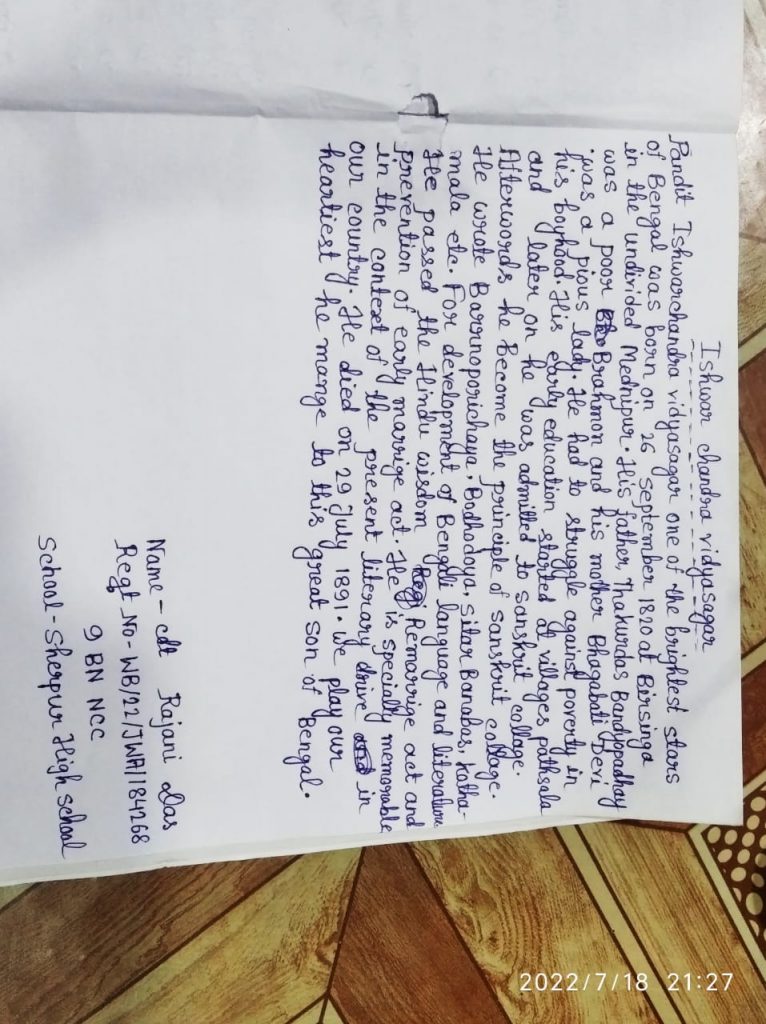 Ishwar chandra vidyasagar
Pandit Ishwarchandra vidyasagar one of the brightest stars
of Bengal was born on 26 september 1820 at Birsinga
in the undivided Mednipur. His father, Thakurdas Bandyppadhay
was a poor Brahmon and his mother Bhagabati Devi
was a pious lady. He had to struggle against poverty in
his boyhood. His early education started at villages pathsala
and later on he was admitted to sanskrit collage.
Afterwords he Become the principle of sanskrit collage.
He wrote Barrnoporichaya, Bodhodoya, sitar Banabas, Katha-
mala etc. For development of Bengali language and literature
He passed the Hindu wisdom Remarrige act and
prevention of early marrige act. He is specially memorable
in the context of the present literary drive in
our country. He died on 29 July 1891. We play our
heartiest he mange to this great son of Bengal.
Name - cdt Rajani Das
Regt No - WB/22/JWA/184268
9 BN NCC
School - Sherpur High school
2022/7/18 21:27